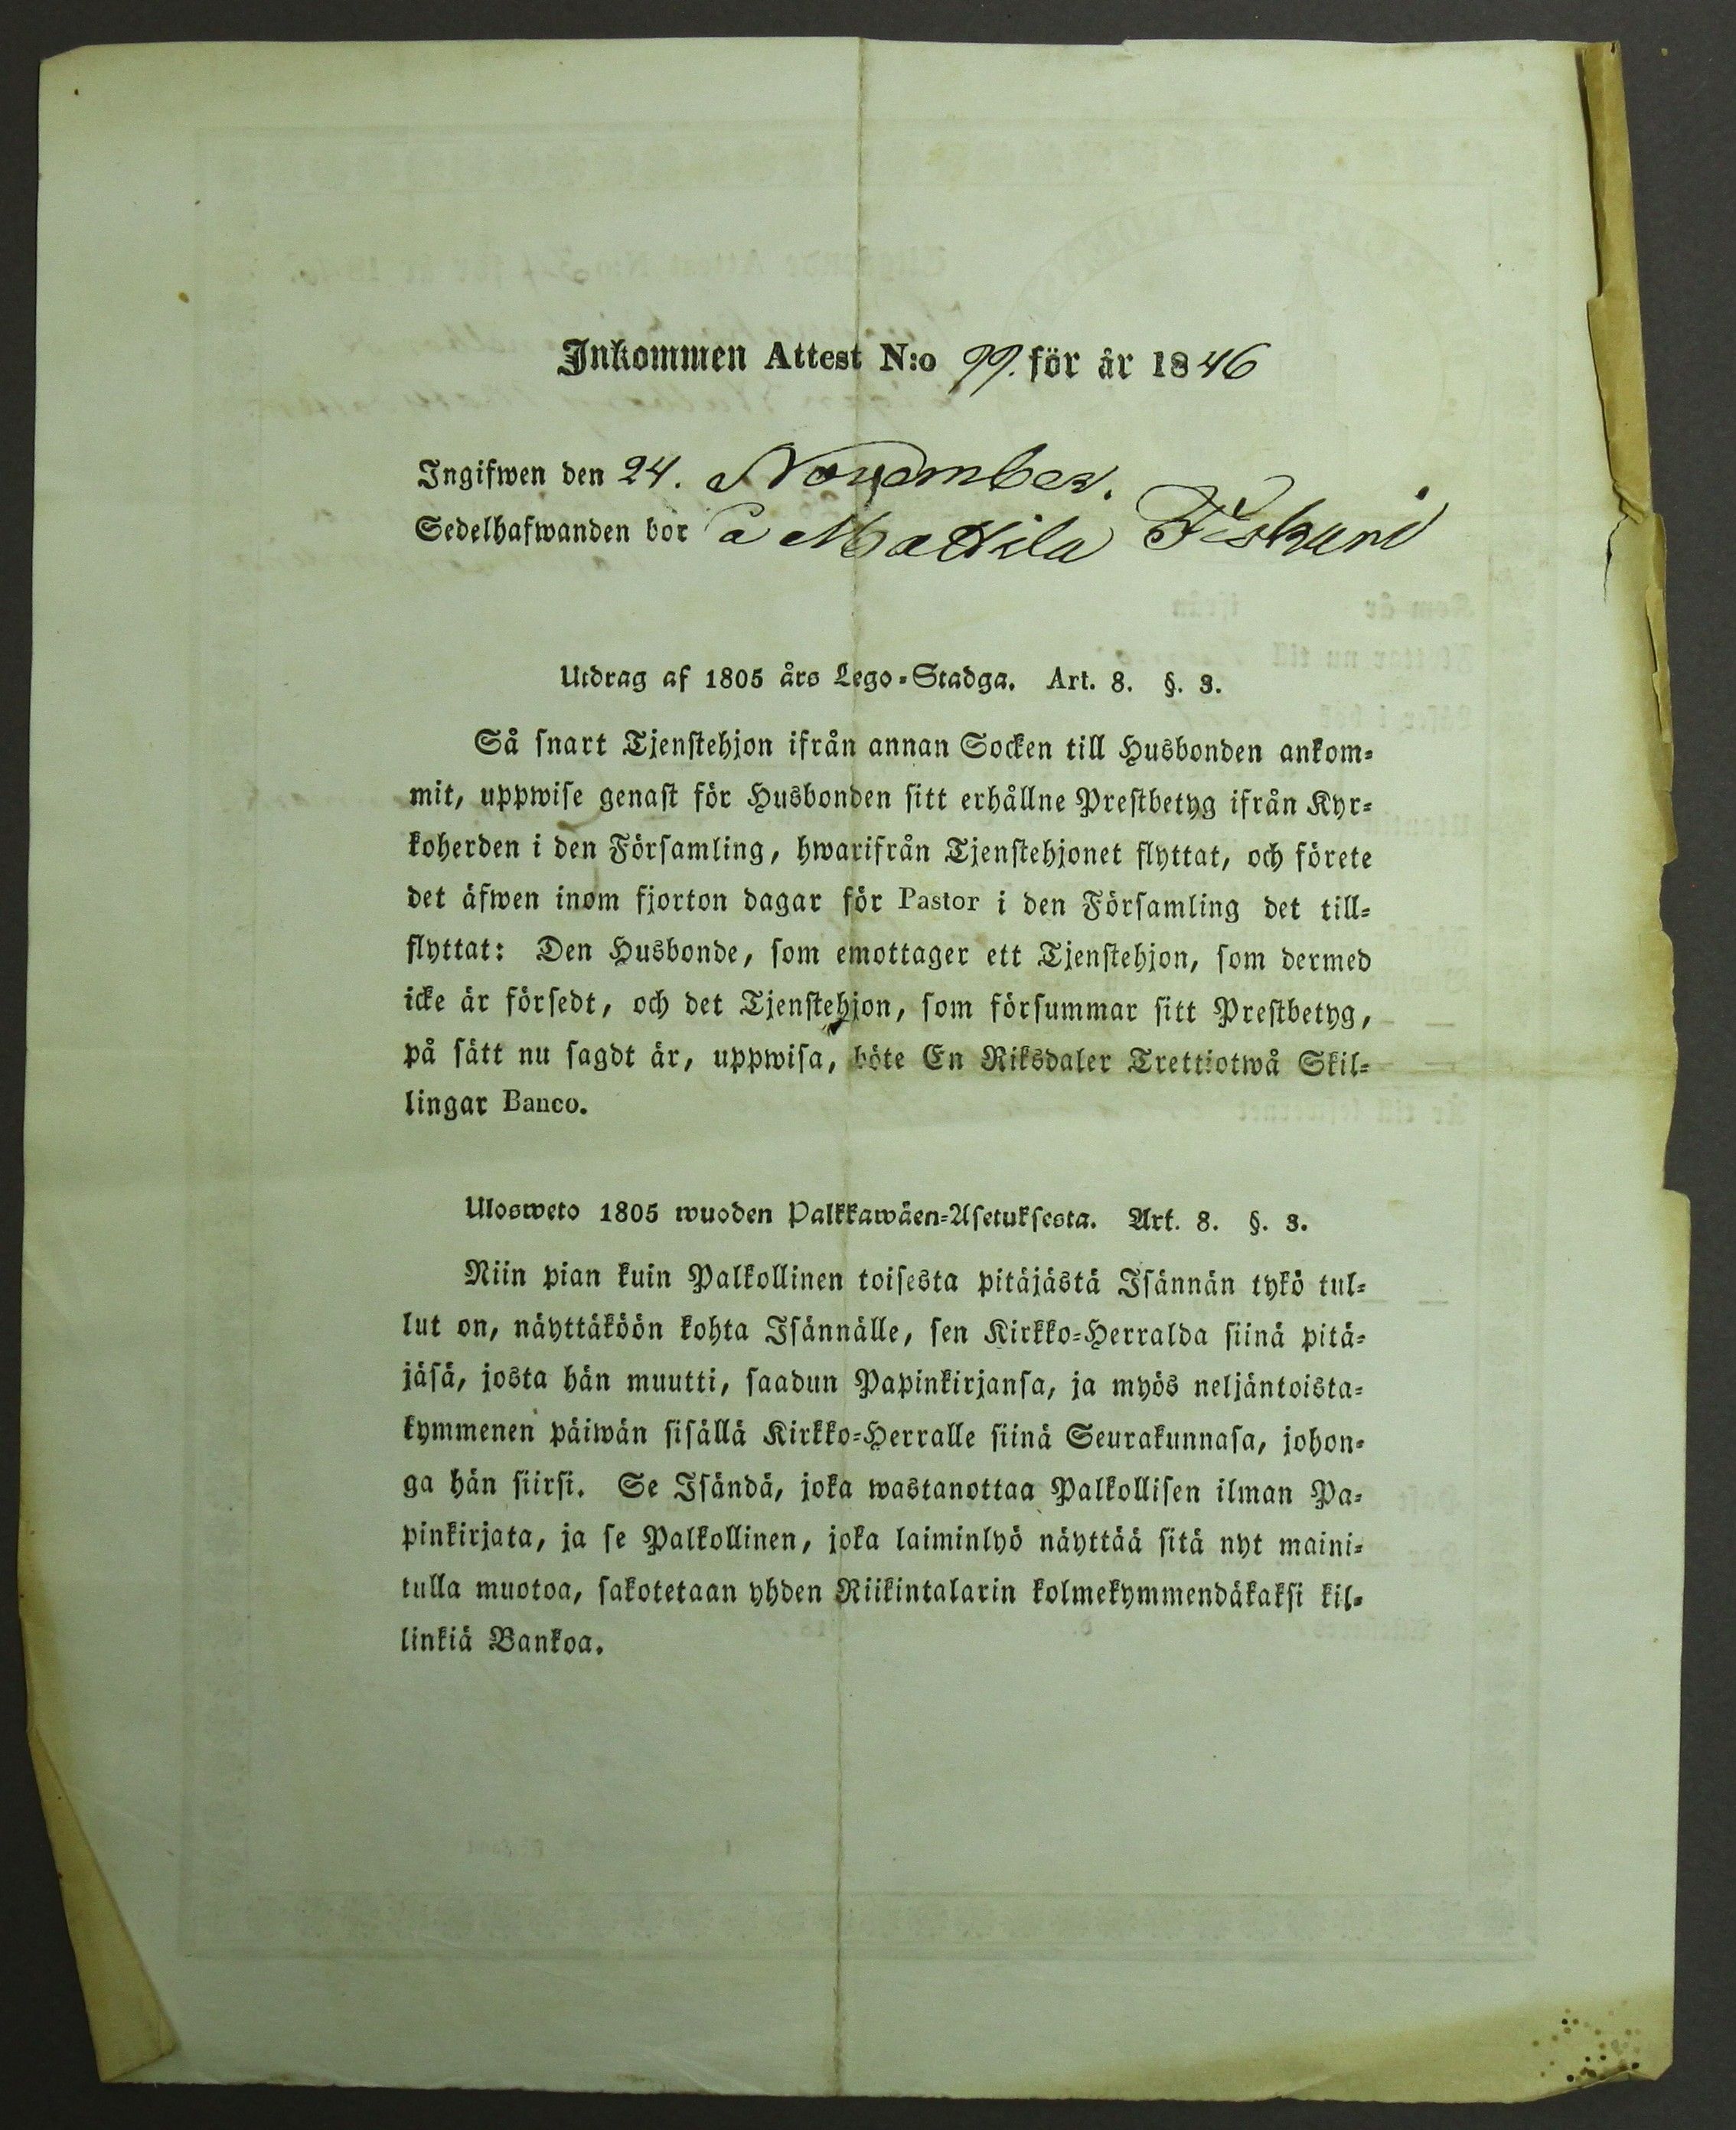 Inkommen Attest N:o 99. för år 1846
Ingifwen den 24. November.
Sedelhafwanden bor å Mattila
Utdrag af 1805 års Lego-Stadga. Art. 8. §. 3.
Så snart Tjenstehjon ifrån annan Socken till Husbonden ankom-
mit, uppwise genast för Husbonden sitt erhållne Prestbetyg ifrån Kyr-
koherden i den Församling, hwarifrån Tjenstehjonet flyttat, och förete
det äfwen inom fjorton dagar för Pastor i den Församling det till-
flyttat: Den Husbonde, som emottager ett Tjenstehjon, som dermed
icke är försedt, och det Tjenstehjon, som försummar sitt Prestbetyg,
på sätt nu sagdt är, uppwisa, böte En Riksdaler Trettiotwå Skil-
lingar Banco.
Ulosweto 1805 wuoden Palkkawäen-Asetuksesta. Art. 8. §. 3.
Niin pian kuin Palkollinen toisesta pitäjästä Isännän tykö tul-
lut on, näyttäköön kohta Isännälle, sen Kirkko-Herralda siinä pitä-
jäsä, josta hän muutti, saadun Papinkirjansa, ja myös neljäntoista-
kymmenen päiwän sisällä Kirkko-Herralle siinä Seurakunnasa, johon-
ga hän siirsi. Se Isändä, joka wastanottaa Palkollisen ilman Pa-
pinkirjata, ja se Palkollinen, joka laiminlyö näyttää sitä nyt maini-
tulla muotoa, sakotetaan yhden Riikintalarin kolmekymmendäkaksi kil-
linkiä Bankoa.